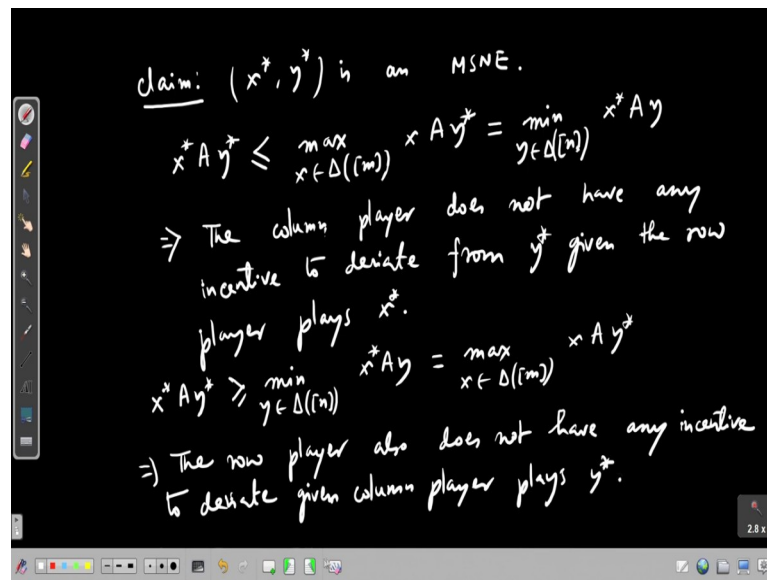 claim: (x*, y*) is an MSNE.
x* A y* ≤ max x∈Δ([m]) x A y* = min y∈Δ([n]) x* A y
⇒ The column player does not have any
incentive to deviate from y* given the row
player plays x*.
x* A y* ≥ min y∈Δ([n]) x* A y = max x∈Δ([m]) x A y*
⇒ The row player also does not have any incentive
to deviate given column player plays y*.
2.8 x